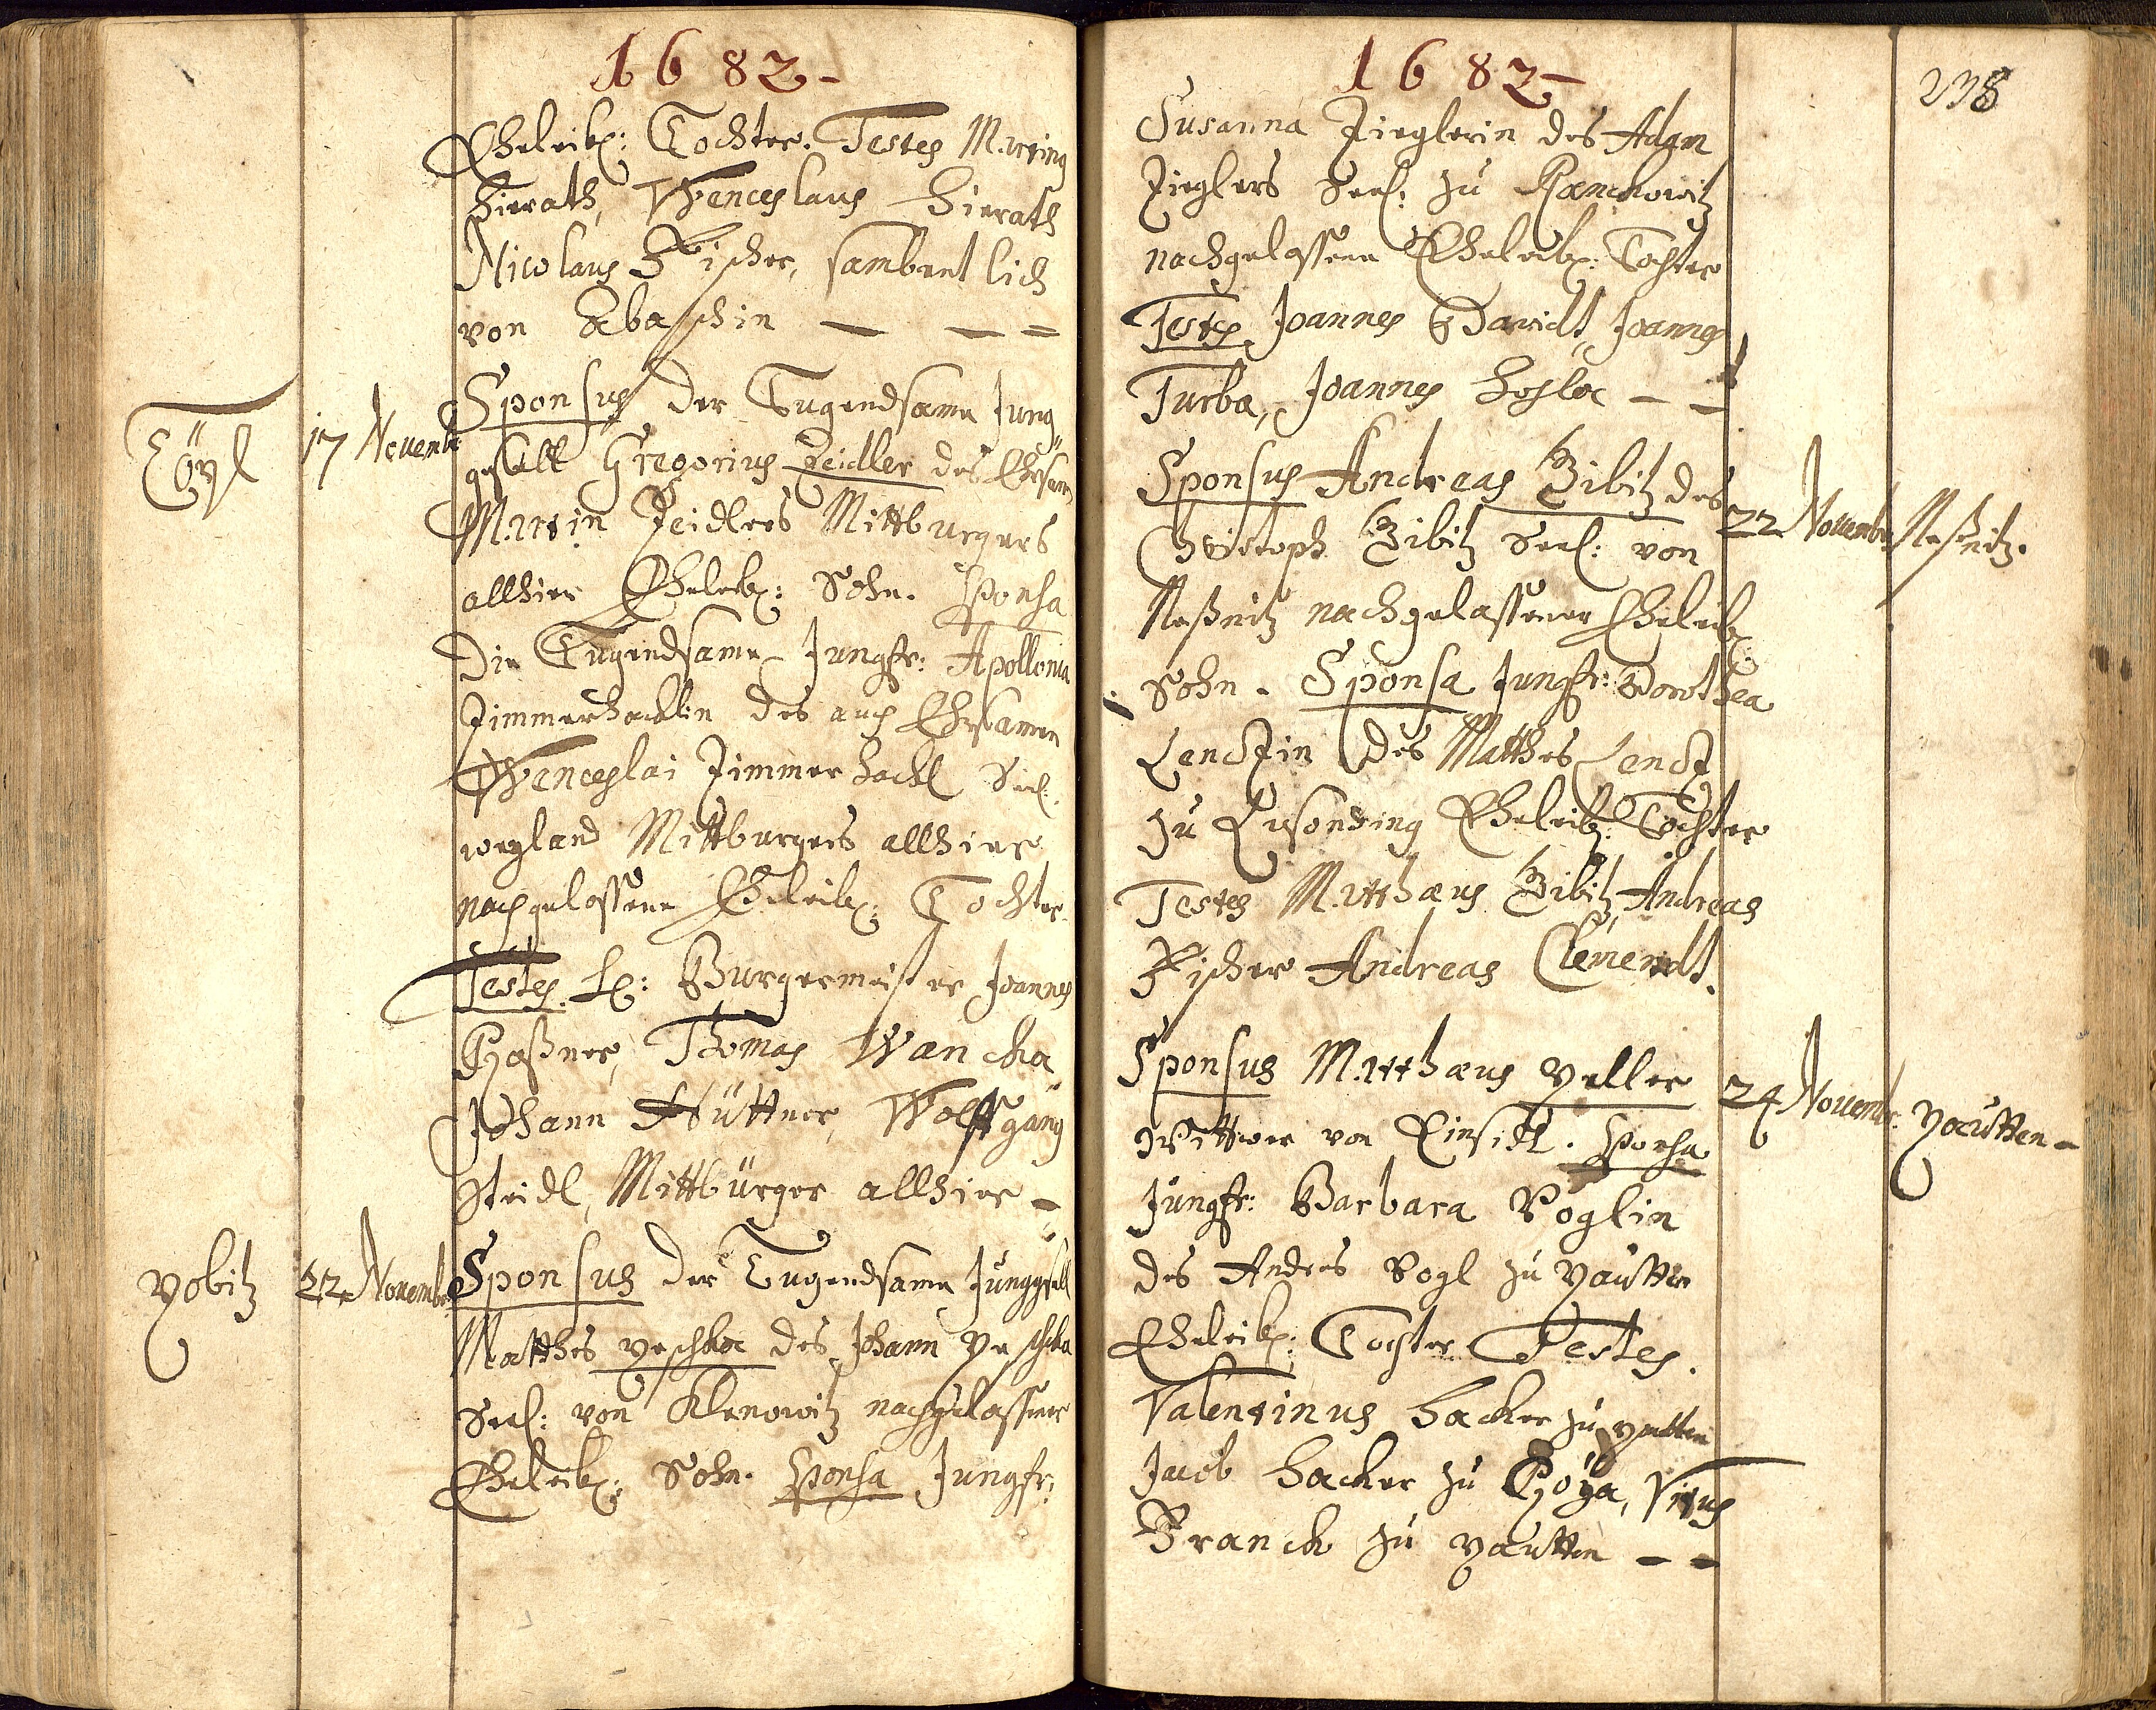 1682-
Eheleibl: Tochter. Testes Martinq
Hierath, Wenceslaus Hierath
Nicolaus Fischer, sambentlich
von Abaschin — — =
Töpl
17 Novembr
Sponsus der Tugendsame Jung„
gesell Gregorius Zeidler des Ehrsam
Martin Zeidlers Mittburgers
allhier Eheleibl: Sohn. Sponsa
Die Tugendsame Jungfr: Apollonia
Zimmerhacklin des auch Ehrsamen
Wenceslai Zimmerhackl Seel.
weyland Mittburgers allhier
nachgelassene Eheleibl: Tochter.
Testes H: Burgermeister Joannes
Thomas Wancka
Johann Hüttner, Wolffgang
Steidl, Mittbürger allhier -
Yobitz
22 Novembr
Sponsus der Tugendsame Junggsell
Matthes Yeschka des Johann Yeschka
Seel: von Klenowitz nachgelassener
Eheleibl: Sohn. Sponsa Jungfr:
1682-
238
Susanna Zieglerin des Adam
Zieglers Seel: zu
nachgelassene Eheleibl: Tochter
Testes Joannes Davidt, Joannes
Turba, Joannes Hoska — —
Sponsus Andreas Zibitz des
22 Novembr
Neßnitz.
Christoph Zibitz Seel: von
Neßnitz nachgelassener Eheleibl:
Sohn. Sponsa Jungfr: Dorothea
Lenczin des Matthes Lencz
zu Eheleibl: Tochter
Testes Matthæus Zibitz, Andreas
Fischer Andreas Clemendt.
Sponsus Matthæus Yeller
24 Novembr:
Yautten -
Wittwer von Einsidl. Sponsa
Jungfr: Barbara Voglin
des Andres Vogl zu Yautten
Eheleibl: Tochter Testes.
Valentinus Hacker zu Yautten
Jacob Hacker zu Vitus
Franck zu Yautten — —